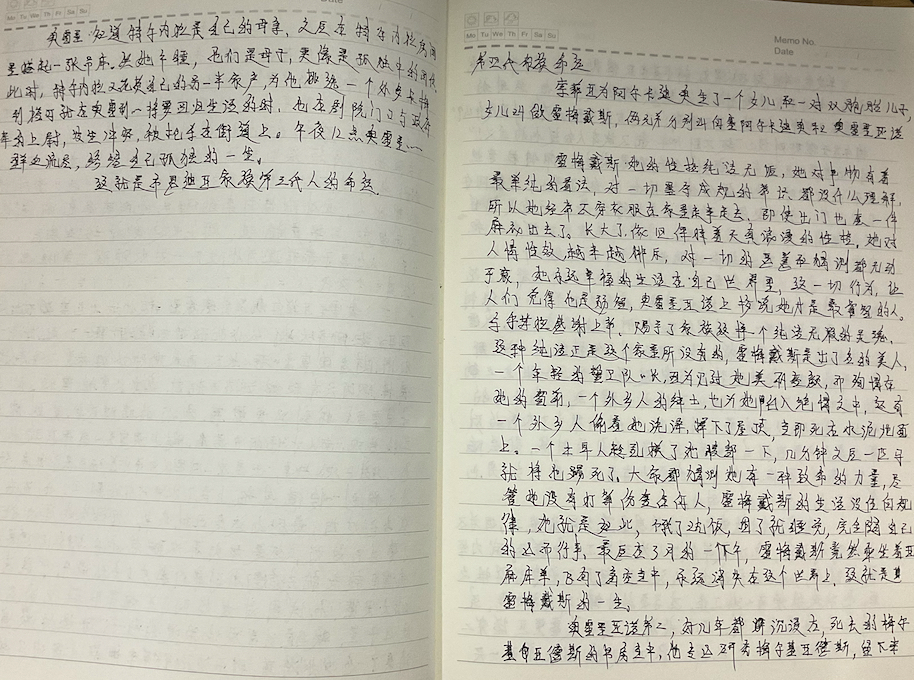 Date
Mo Tu We Th Fr Sa Su
奥雷里 知道特尔内拉是自己的母亲，之后在特尔内拉房间
里搭起一张吊床。然她午睡，他们是母子，更像是孤独中的同伴
此时，特尔内拉又花费自己的另一半家产，为他挑选一个外乡卡梅
到椅可就在奥雷到一得罗回归生活的时，也在剧院门口与政府
军的上尉，发生冲突，被枪杀在街道上。午夜12点奥雷里一
群血流尽，终结自己孤独的一生。
这就是布恩迪亚家族第三代人的布兹。
Memo No.
Date
Mo Tu We Th Fr Sa Su
第四代家族布兹
索菲亚为阿尔卡迪奥生了一个女儿和一对双胞胎儿子，
女儿叫做雷梅戴斯，俩兄弟分别叫何塞阿尔卡迪奥和奥雷里亚诺
雷梅戴斯 她的性格纯洁无瑕，她对事物有着
最单纯的看法，对一切墨守成规的常识 都没什么理解，
所以她经常不穿衣服在家里走来走去，即使出门也套一件
麻衣出去了。长大了，依旧保持着天真浪漫的性格，她对
人情性欲，越来越排斥，对一切的恶意和猜测都无动
于衷，她永远幸福的生活在自己世界里，这一切行为，让
人们觉得她是弱智，奥雷里亚诺上校说她才是最有智的人。
乌尔苏拉感谢上帝，赐予了家族这样一个纯洁无瑕的灵魂，
这种纯洁正是这个家里所没有的，雷梅戴斯是出了名的美人，
一个年轻的警卫队队长，因为见过她美丽容颜，即殉情在
她的窗前，一个外乡人的绅士，也为她陷入绝情之中，还有
一个外乡人偷看她洗澡，摔下了屋顶，立即死在水泥地面
上。一个本旱人轻乱摸了她腹部一下，几分钟之后一匹马
就将他踢死了。大家都猜测她有一种致命的力量，尽
管她没有打算伤害任何人，雷梅戴斯的生活没任何规
律，她就是如此，饿了吃饭，困了就睡觉，完全随自己
的心而行事，最后在3月的一个下午，雷梅戴斯竟然乘坐着亚
麻床单，飞向了高空之中，永远消失在这个世界上，这就是其
雷梅戴斯的一生。
奥雷里亚诺第二，好几年都将沉浸在，死去的梅尔
基自亚德斯的书房之中，他专心研究梅尔基亚德斯，留下来